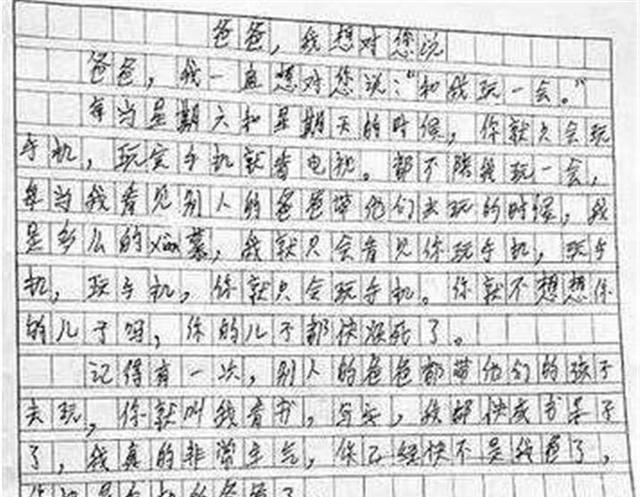 爸爸，我想对您说
爸爸，我一直想对您说："和我玩一会。"
每当星期六和星期天的时候，你就只会玩
手机，玩完手机就看电视。都不陪我玩一会，
每当我看见别人的爸爸带他们去玩的时候，我
是多么的xiàn慕，我就只会看见你玩手机，玩手
机，玩手机，你就只会玩手机。你就不想想你
的儿子吗，你的儿子都快烦死了。
记得有一次，别人的爸爸都带他们的孩子
去玩，你就叫我看书，写字，我都快成书呆子
了，我真的非常生气，你已经快不是我爸了，